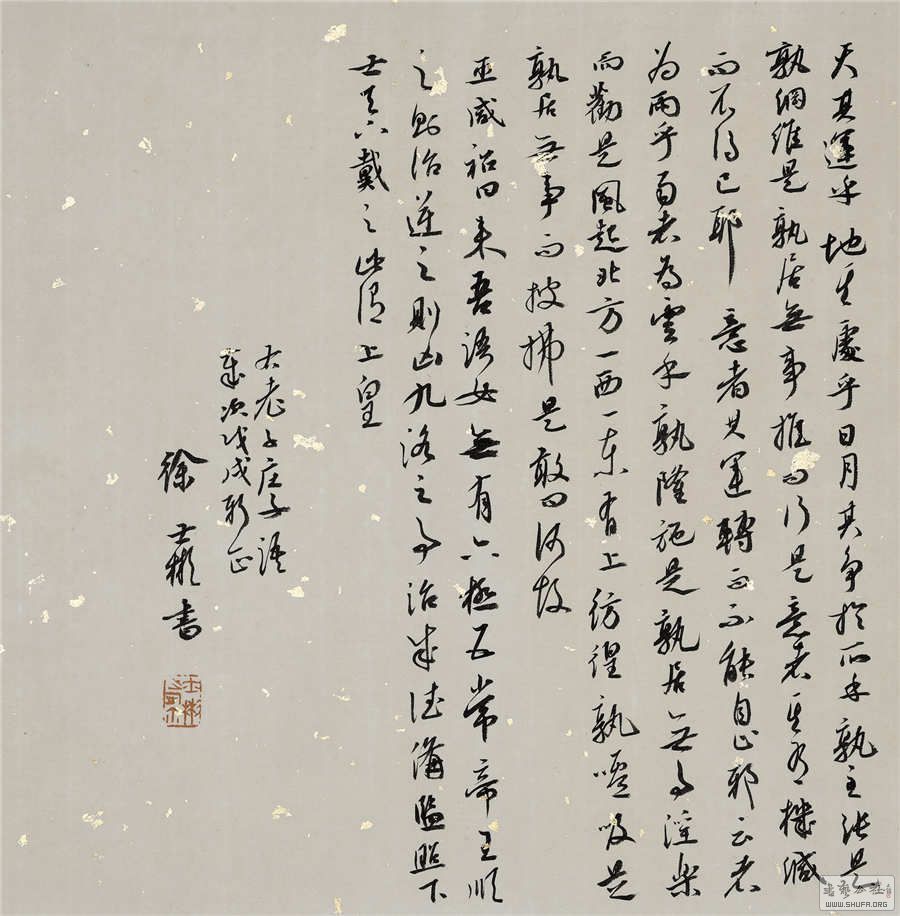 天其運乎地其處乎日月其爭於所乎孰主張是
孰綱維是孰居無事推而行是意者其有機緘
而不得已耶意者其運轉而不能自止耶云者
為雨乎雨者為雲乎孰隆施是孰居無事淫樂
而勸是風起北方一西一東有上彷徨孰噓吸是
孰居無事而披拂是敢問何故
巫咸祒曰来吾語女無有六極五常帝王順
之則治逆之則凶九洛之事治成德備監照下
土天下戴之此謂上皇
右老子庄子語
歲次戊戌新正
徐士彬書
WWW.SHUFA.ORG